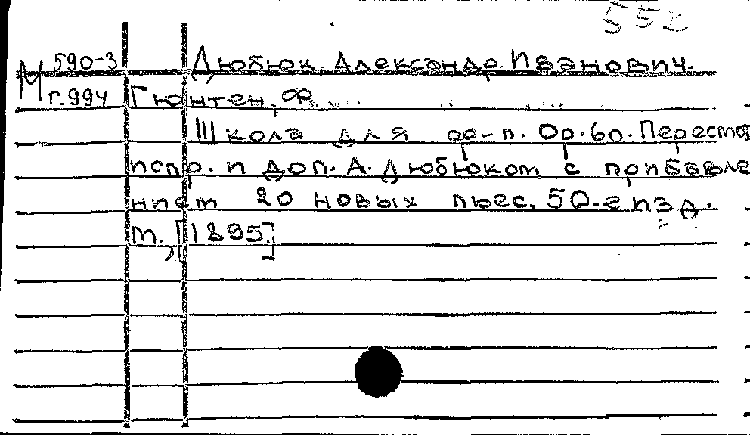 552
М 590-3
г.994
Дюбюк Александр Иванович.
Гюнтен, Ф.
Школа для фо-п. Ор. 60. Перестр
испр. и доп. А. Дюбюком с прибавле
нием 20 новых пьес. 50-е изд.
М., [1895]